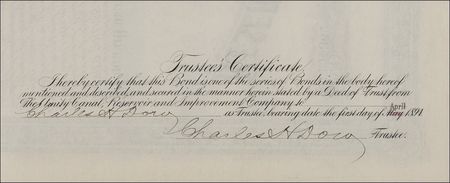 Trustee's Certificate.
I hereby certify that this Bond is one of the series of Bonds in the body hereof
mentioned and described, and secured in the manner herein stated by a Deed of Trust from
The Amity Canal, Reservoir and Improvement Company to
April
Charles H Dow as Trustee, bearing date the first day of May 1891.
Charles H Dow Trustee.